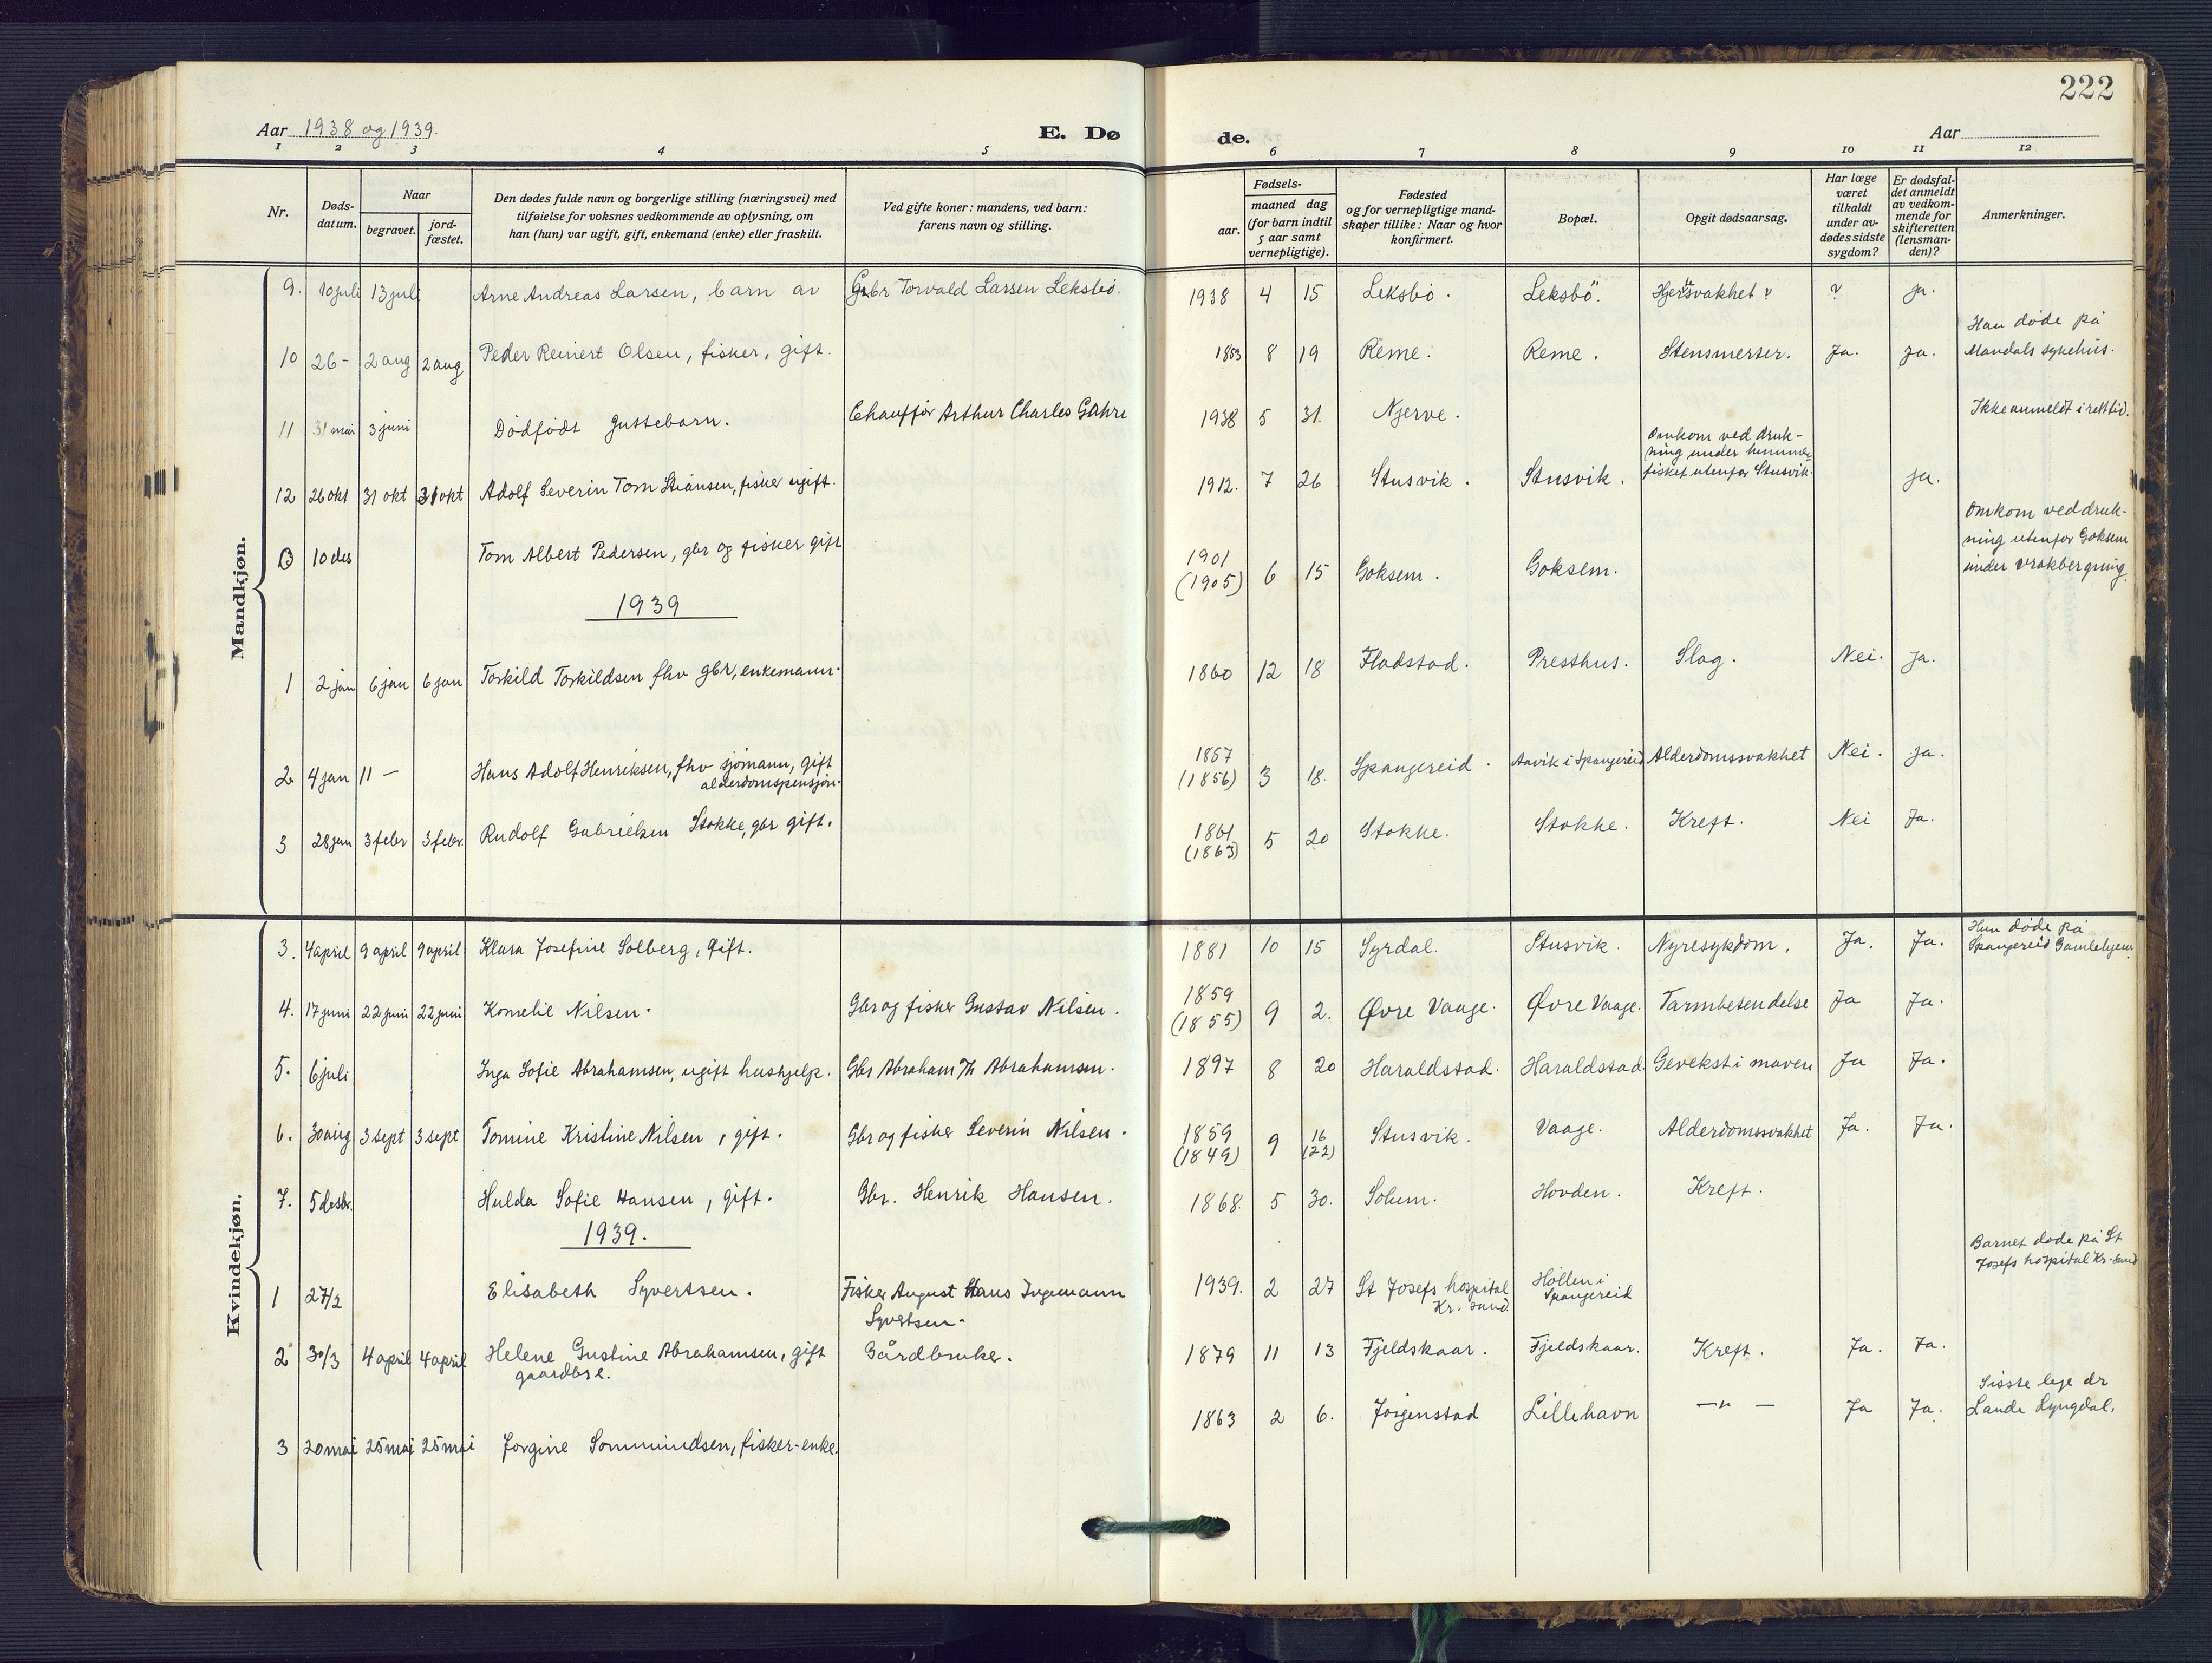 222
Aar 1938 og 1939.
E. Dø
de.
Aar
1 2 3 4 5 6 7 8 9 10 11 12
Nr.
Døds-
datum.
Naar
begravet.
jord-
fæstet.
Den dødes fulde navn og borgerlige stilling (næringsvei) med
tilføielse for voksnes vedkommende av oplysning, om
han (hun) var ugift, gift, enkemand (enke) eller fraskilt.
Ved gifte koner: mandens, ved barn:
farens navn og stilling.
Fødsels-
aar.
maaned dag
(for barn indtil
5 aar samt
vernepligtige).
Fødested
og for vernepligtige mand-
skaper tillike: Naar og hvor
konfirmert.
Bopæl.
Opgit dødsaarsag.
Har læge
været
tilkaldt
under av-
dødes sidste
sygdom?
Er dødsfal-
det anmeldt
av vedkom-
mende for
skifteretten
(lensman-
den)?
Anmerkninger.
Mandkjøn.
9. 10 juli 13 juli Arne Andreas Larsen, barn av Gbr Torvald Larsen Leksbö. 1938 4 15 Leksbö. Leksbö. Hjertesvakhet ? ? ja.
10 26 - 2 aug 2 aug Peder Reinert Olsen, fisker, gift. 1853 8 19 Reme. Reme. Stensmerter. Ja. ja. Han døde på
Mandals sykehus.
11 31 mai 3 juni Dödfödt guttebarn. Chauffør Arthur Charles Gahre 1938 5 31. Njerve. Ikke anmeldt i rett tid.
12 26 okt 31 okt 31 okt Adolf Severin Tom Stiansen, fisker ugift. 1912. 7 26 Stusvik. Stusvik. Omkom ved druk-
ning under hummer-
fisket utenfor Stusvik. ja.
13 10 des Tom Albert Pedersen, gbr og fisker gift 1901
(1905) 6 15 Goksem. Goksem. Omkom ved druk-
ning utenfor Goksem
under vrakbergning.
1939
1 2 jan 6 jan 6 jan Torkild Torkildsen fhv gbr, enkemann. 1860 12 18 Fladstad. Presthus. Slag. Nei. ja.
2 4 jan 11 - Hans Adolf Henriksen, fhv sjömann, gift
alderdomspensjon. 1857
(1856) 3 18. Spangereid. Aavik i Spangereid Alderdomssvakhet Nei. ja.
3 28 jan 3 febr 3 febr. Rudolf Gabrielsen Stokke, gbr gift. 1861
(1863) 5 20 Stokke. Stokke. Kreft. Nei Ja.
Kvindekjøn.
3. 4 april 9 april 9 april Klara Josefine Solberg, gift. 1881 10 15 Syrdal. Stusvik. Nyresykdom. Ja. Ja. Hun døde på
Spangereid Gamlehjem.
4. 17 juni 22 juni 22 juni Kornelie Nilsen. Gbr og fisker Gustav Nilsen. 1859
(1855) 9 2. Øvre Vaage. Øvre Vaage. Tarmbetendelse Ja Ja.
5. 6 juli Inga Sofie Abrahamsen, ugift hushjelp. Gbr Abraham Th Abrahamsen. 1897 8 20 Haraldstad. Haraldstad. Gevekst i maven Ja Ja.
6. 30 aug 3 sept 3 sept Tomine Kristine Nilsen, gift. Gbr og fisker Severin Nilsen. 1859
(1849) 9 16
(22) Stusvik. Vaage. Alderdomssvakhet Ja. Ja.
7. 5 desbr. Hulda Sofie Hansen, gift. Gbr. Henrik Hansen. 1868. 5 30. Solum. Hovden. Kreft.
1939.
1 27/2 Elisabeth Syvertsen. Fisker August Hans Ingemann
Syvertsen. 1939. 2 27 St Josefs hospital
Kr. sand. Höllen i
Spangereid Barnet døde på St
Josefs hospital Kr.sand
2 30/3 4 april 4 april Helene Gustine Abrahamsen, gift
gaardbr e. Gårdbruker. 1879 11 13 Fjeldskaar. Fjeldskaar. Kreft. Ja. Ja.
3 20 mai 25 mai 25 mai Jorgine Sommundsen, fisker-enke. 1863 2 6. Jørgenstad Lillehavn - " - Ja Ja. Sisste lege dr
Lande Lyngdal.